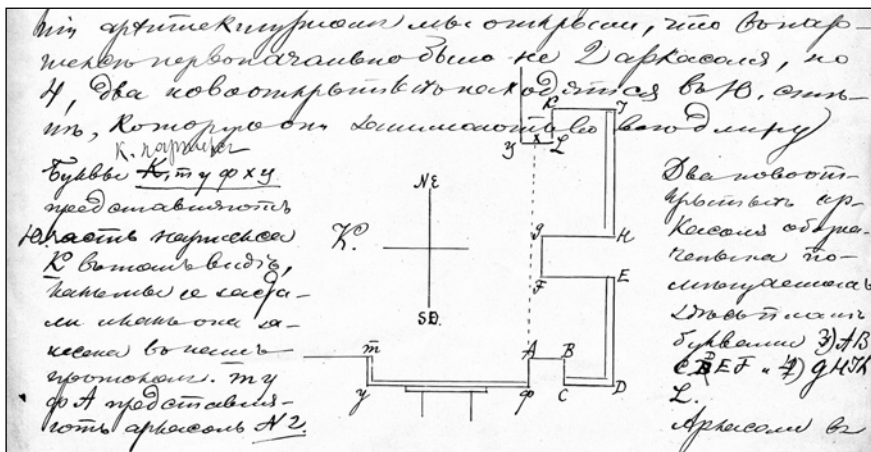 архитектурномъ мы открыли, что въ нар-
тексѣ первоначально было не 2 аркасоля, но
4, два новооткрытыхъ находятся въ Ю. стѣ-
нѣ, которую они занимаютъ во всю длину)
Буквы т у ф х у
представляютъ
Ю. часть нартекса
К въ томъ видѣ,
какъ мы ее заста-
ли и какъ она за-
несена въ нашъ
протокол. т у
ф А представля-
ютъ аркасоль №2.
К.
NE
SD.
К I
у х L
g H
F E
т A B
у ф C D
Два новоот-
крытыхъ ар-
касоля обозна-
чены на по-
мѣщаемомъ
здѣсь планѣ
буквами 3) AB
CDEF и 4) gHIK
L.
Аркасоли въ